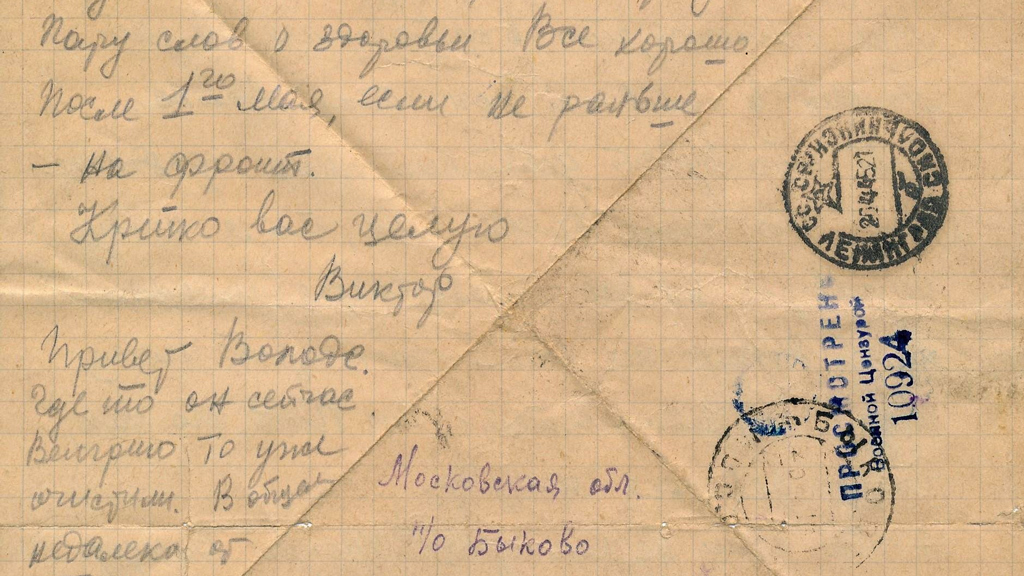 Пару слов о здоровьи. Все хорошо
После 1го Мая, если не раньше
— на фронт.
Крепко вас целую
Виктор
Привет Володе.
Где то он сейчас.
Венгрию то уже
очистили. В общем
недалеко от
Московская обл.
п/о Быково
ЛЕНИНГРАД
ПРОСМОТРЕН
Военной Цензурой
10924